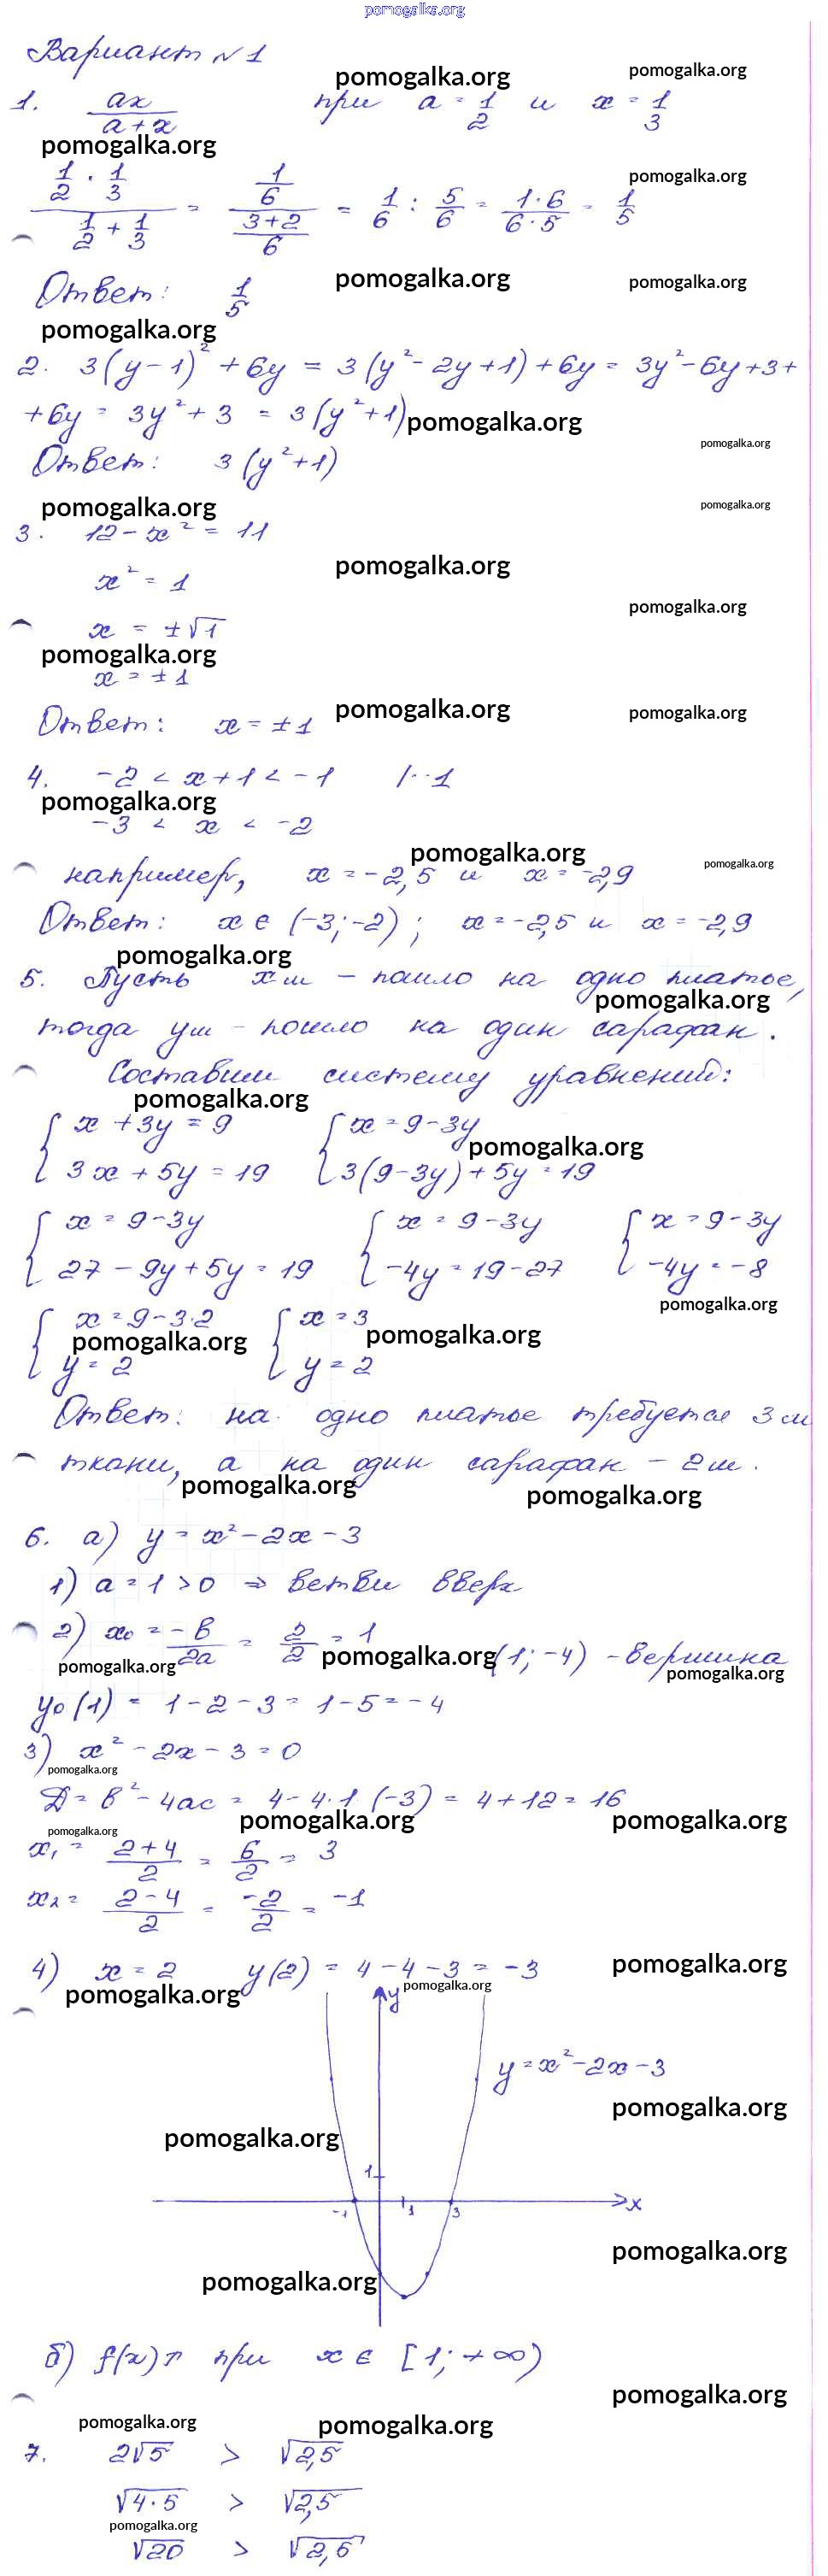 pomogalka.org
Вариант №1
pomogalka.org pomogalka.org
1. ax/(a+x) при a = 1/2 и x = 1/3
pomogalka.org
pomogalka.org
(1/2 · 1/3)/(1/2 + 1/3) = (1/6)/((3+2)/6) = 1/6 : 5/6 = (1·6)/(6·5) = 1/5
pomogalka.org pomogalka.org
Ответ: 1/5
pomogalka.org
2. 3(y-1)² + 6y = 3(y² - 2y + 1) + 6y = 3y² - 6y + 3 +
+ 6y = 3y² + 3 = 3(y² + 1)
pomogalka.org
pomogalka.org
Ответ: 3(y² + 1)
pomogalka.org pomogalka.org
3. 12 - x² = 11
pomogalka.org
x² = 1
pomogalka.org
x = ±√1
pomogalka.org
x = ±1
pomogalka.org pomogalka.org
Ответ: x = ±1
4. -2 < x + 1 < -1 |-1
pomogalka.org
-3 < x < -2
pomogalka.org pomogalka.org
например, x = -2,5 и x = -2,9
Ответ: x ∈ (-3; -2); x = -2,5 и x = -2,9
pomogalka.org
5. Пусть x м - пошло на одно платье,
pomogalka.org
тогда y м - пошло на один сарафан.
Составим систему уравнений:
pomogalka.org
{ x + 3y = 9 { x = 9 - 3y
pomogalka.org
3x + 5y = 19 3(9 - 3y) + 5y = 19
{ x = 9 - 3y { x = 9 - 3y { x = 9 - 3y
27 - 9y + 5y = 19 -4y = 19 - 27 -4y = -8
pomogalka.org
{ x = 9 - 3·2 { x = 3
pomogalka.org pomogalka.org
y = 2 y = 2
Ответ: на одно платье требуется 3 м
ткани, а на один сарафан - 2 м.
pomogalka.org pomogalka.org
6. а) y = x² - 2x - 3
1) a = 1 > 0 ⇒ ветви вверх
2) x₀ = -b/2a = 2/2 = 1 (1; -4) - вершина
pomogalka.org pomogalka.org pomogalka.org
y₀(1) = 1 - 2 - 3 = 1 - 5 = -4
3) x² - 2x - 3 = 0
pomogalka.org
D = b² - 4ac = 4 - 4·1·(-3) = 4 + 12 = 16
pomogalka.org pomogalka.org
pomogalka.org
x₁ = (2+4)/2 = 6/2 = 3
x₂ = (2-4)/2 = -2/2 = -1
4) x = 2 y(2) = 4 - 4 - 3 = -3
pomogalka.org
pomogalka.org pomogalka.org
y
y = x² - 2x - 3
pomogalka.org
pomogalka.org
1
-1 1 3 x
pomogalka.org
pomogalka.org
б) f(x)↗ при x ∈ [1; +∞)
pomogalka.org
pomogalka.org pomogalka.org
7. 2√5 > √2,5
√4·5 > √2,5
pomogalka.org
√20 > √2,5